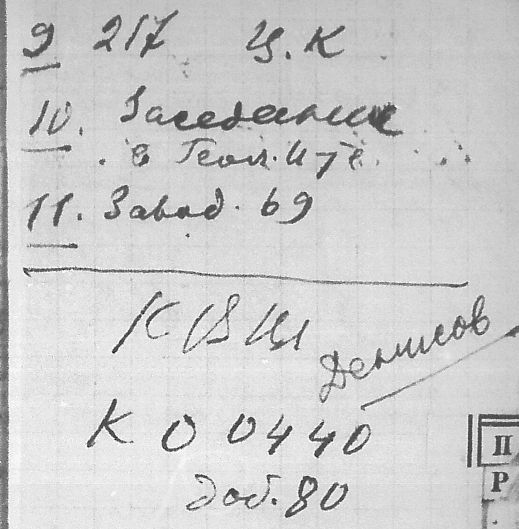 9 217 Ц.К
10. Заседание
в Геол. И-те
11. Завод. 69
КВЦ
Денисов
К 0 04 40
доб. 80
П
Р